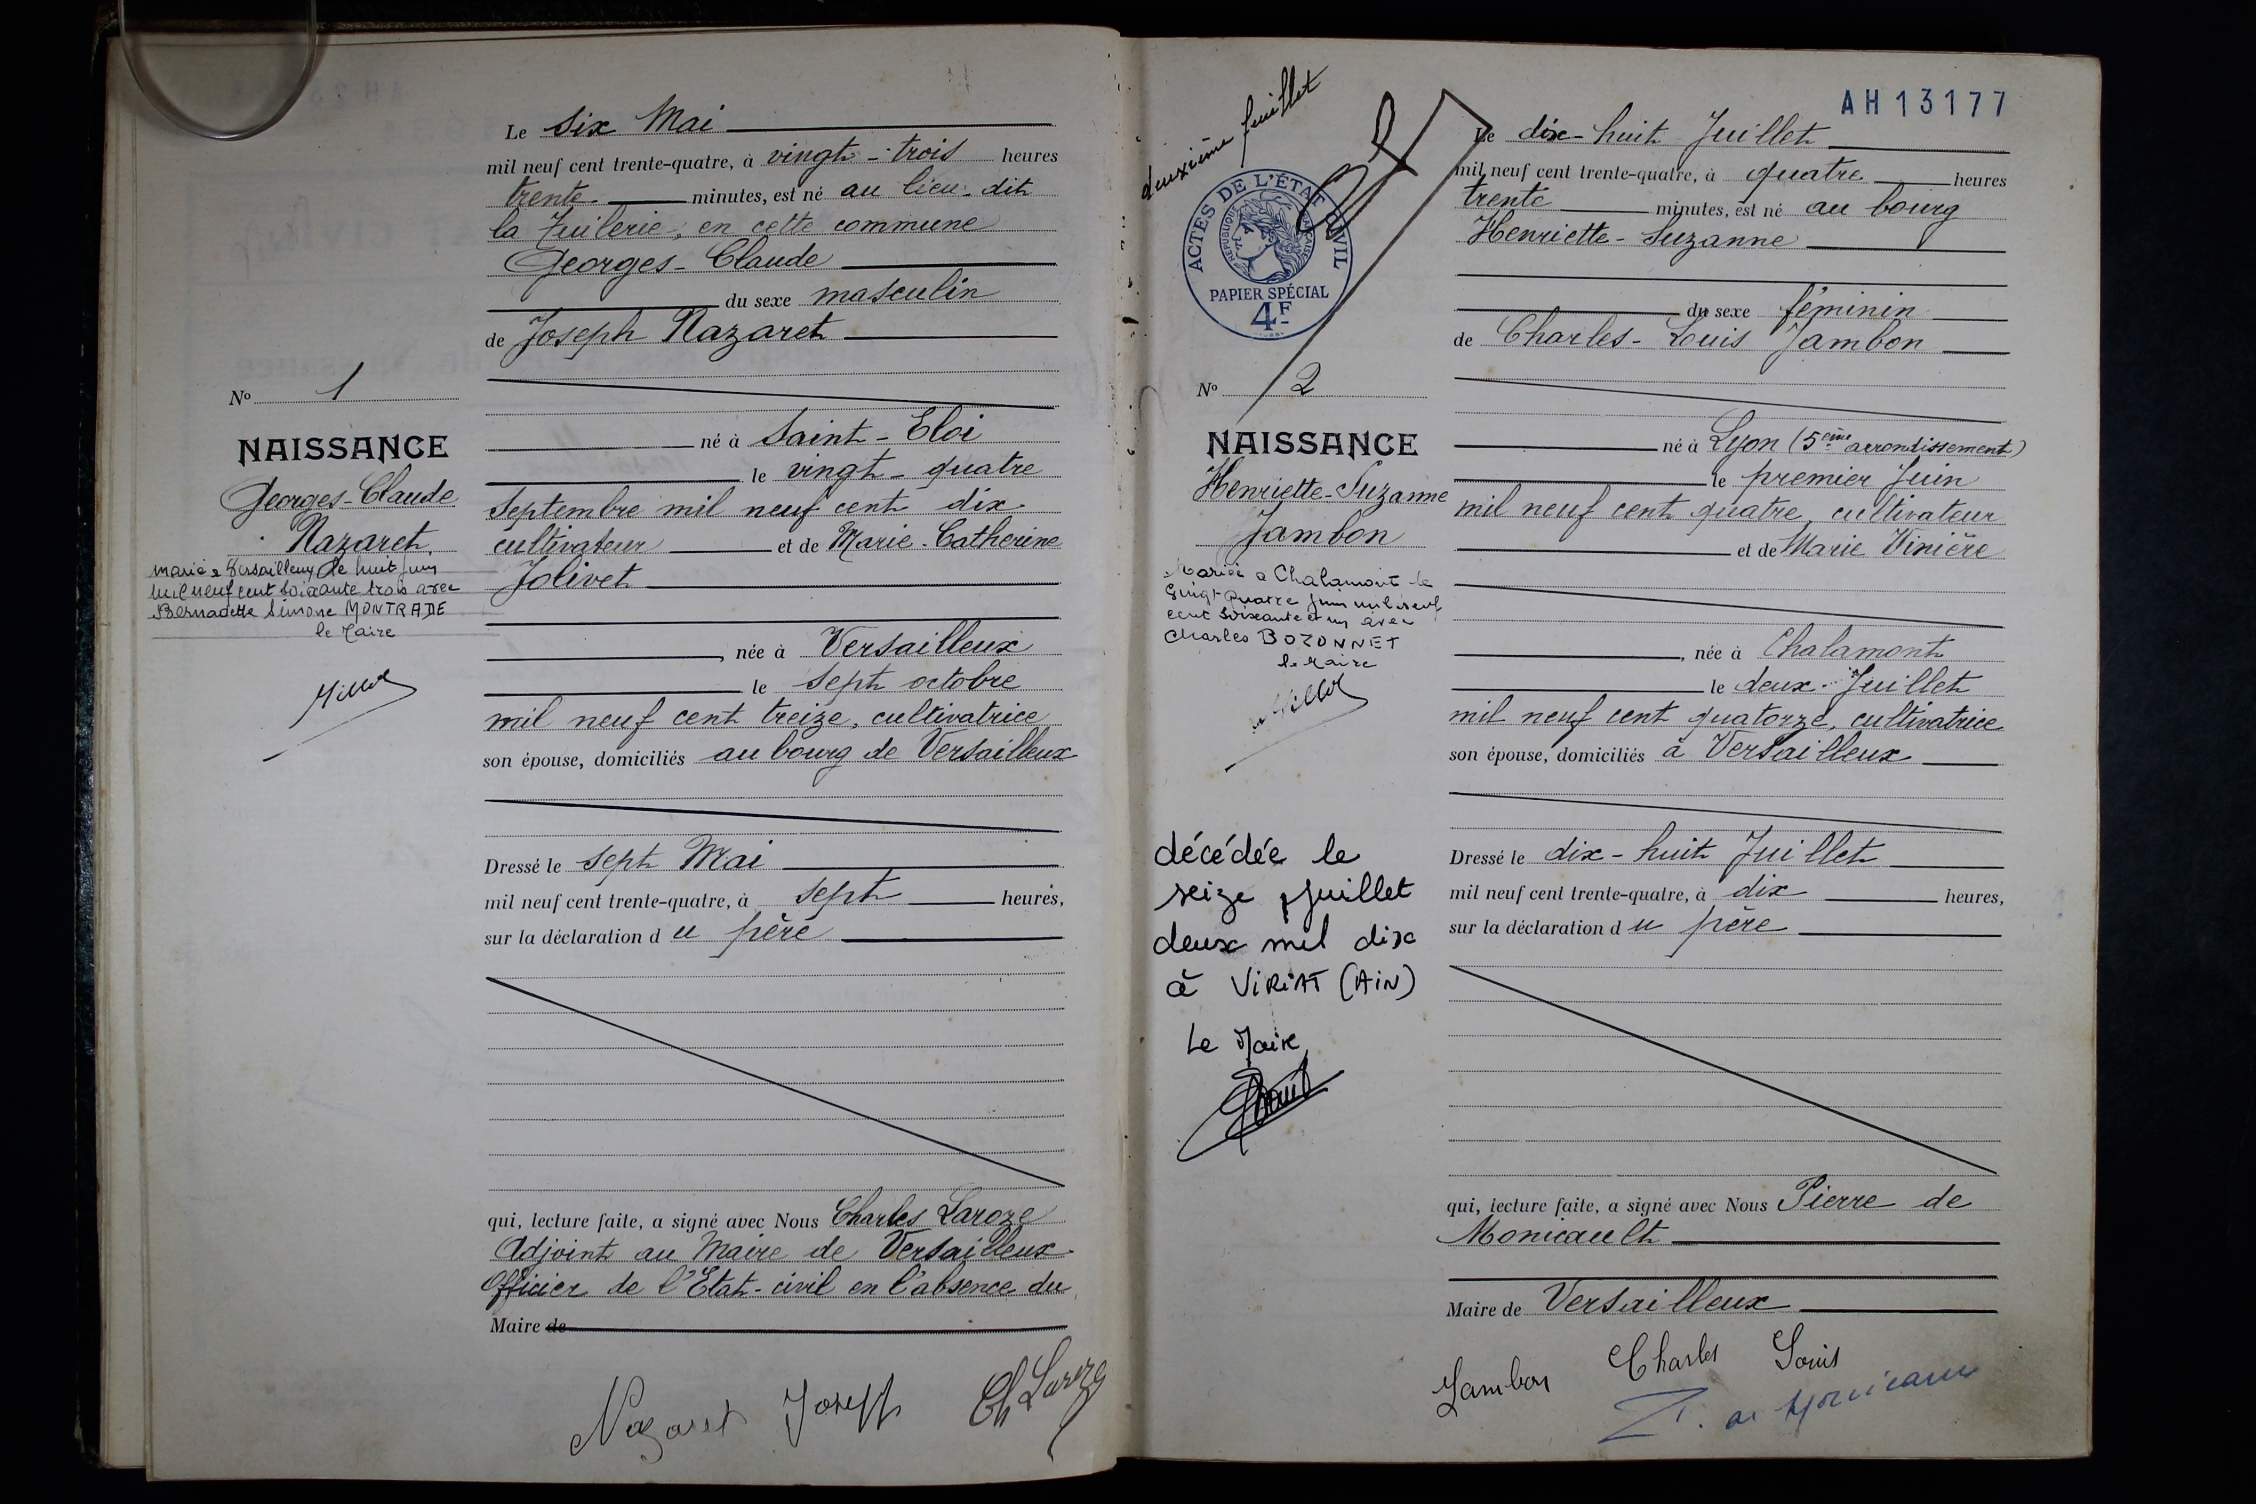 Le six Mai
mil neuf cent trente-quatre, à vingt-trois heures
trente minutes, est né au lieu-dit
la Tuilerie, en cette commune
Georges-Claude
du sexe masculin
de Joseph Nazaret
né à Saint-Eloi
le vingt-quatre
Septembre mil neuf cent dix
cultivateur et de Marie-Catherine
Jolivet
, née à Versailleux
le sept octobre
mil neuf cent treize, cultivatrice
son épouse, domiciliés au bourg de Versailleux
Dressé le sept Mai
mil neuf cent trente-quatre, à sept heures,
sur la déclaration du père
qui, lecture faite, a signé avec Nous Charles Laroze
Adjoint au Maire de Versailleux
Officier de l'Etat-civil en l'absence du
Maire de
Nazaret Joseph Ch Laroze
No 1
NAISSANCE
Georges-Claude
Nazaret.
marié à Versailleux le huit juin
mil neuf cent soixante trois avec
Bernadette Simone MONTRADE
le Maire
deuxième feuillet
ACTES DE L'ÉTAT CIVIL
RÉPUBLIQUE FRANÇAISE
PAPIER SPÉCIAL
4F
No 2
NAISSANCE
Henriette-Suzanne
Jambon
Mariée à Chalamont le
vingt quatre juin mil neuf
cent soixante et un avec
Charles BOZONNET
le Maire
décédée le
seize juillet
deux mil dix
à VIRIAT (AIN)
Le Maire
AH13177
Le dix-huit Juillet
mil neuf cent trente-quatre, à quatre heures
trente minutes, est né au bourg
Henriette-Suzanne
du sexe féminin
de Charles-Louis Jambon
né à Lyon (5ème arrondissement)
le premier Juin
mil neuf cent quatre, cultivateur
et de Marie Vinière
, née à Chalamont
le deux Juillet
mil neuf cent quatorze, cultivatrice
son épouse, domiciliés à Versailleux
Dressé le dix-huit Juillet
mil neuf cent trente-quatre, à dix heures,
sur la déclaration du père
qui, lecture faite, a signé avec Nous Pierre de
Monicault
Maire de Versailleux
Jambon Charles Louis
P. de Monicault